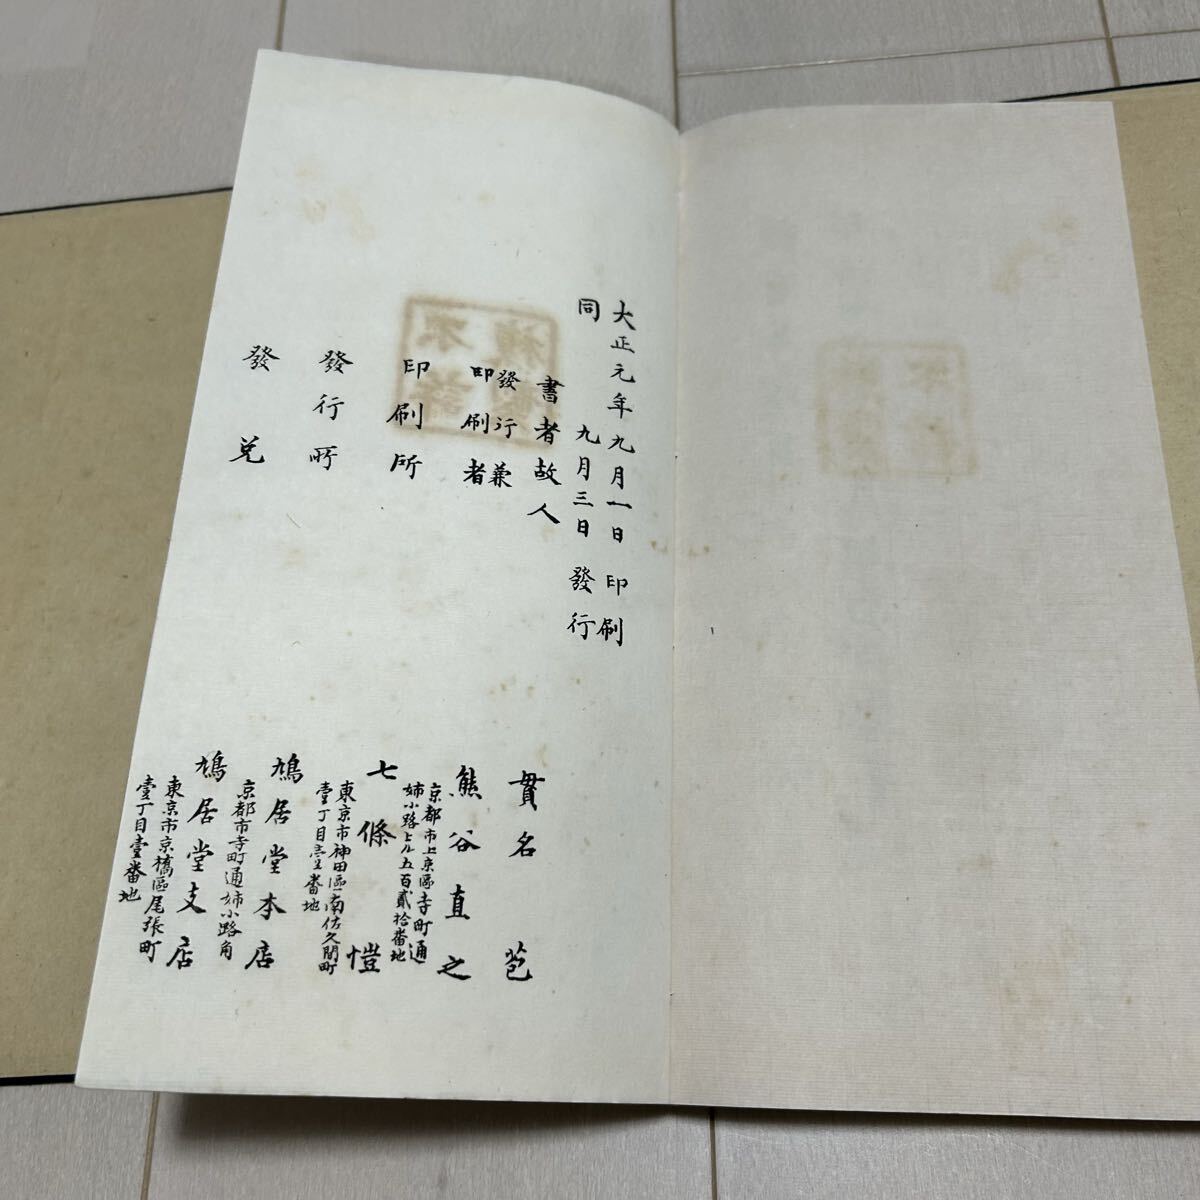 大正元年九月一日印刷
同九月三日發行
書者故人
貫名苞
發行兼
印刷者
熊谷直之
京都市上京區寺町通
姉小路上ル五百貳拾番地
印刷所
七條愷
東京市神田區南佐久間町
壹丁目壹番地
發行所
鳩居堂本店
京都市寺町通姉小路角
發兌
鳩居堂支店
東京市京橋區尾張町
壹丁目壹番地